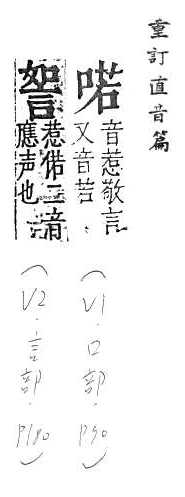 重訂直音篇
喏 音惹敬言又音若
（V1．口部．P90）
䛾 惹偌二音應声也
（V2．言部．P190）